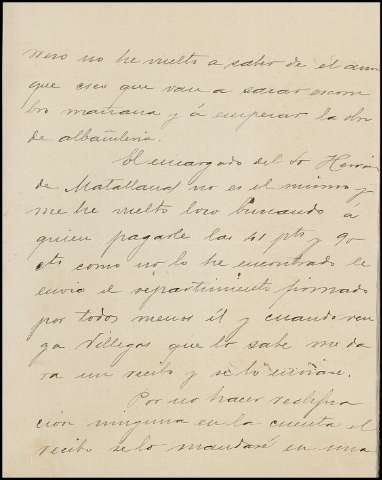 nero no he vuelto a saber de él aun
que creo que van a sacar escom
bro mañana y á empezar la obra
de albañileria.
El encargado del Sr Herrán
de Matallana no es el mismo y
me he vuelto loco buscando á
quien pagarle las 41 pts y 90
cts como no lo he encontrado le
envio el repartimiento firmado
por todos menos él y cuando ven
ga Villegas que lo sabe me da
ra un recibo y se lo enviare.
Por no hacer rectifica
ción ninguna en la cuenta el
recibo se lo mandaré en una